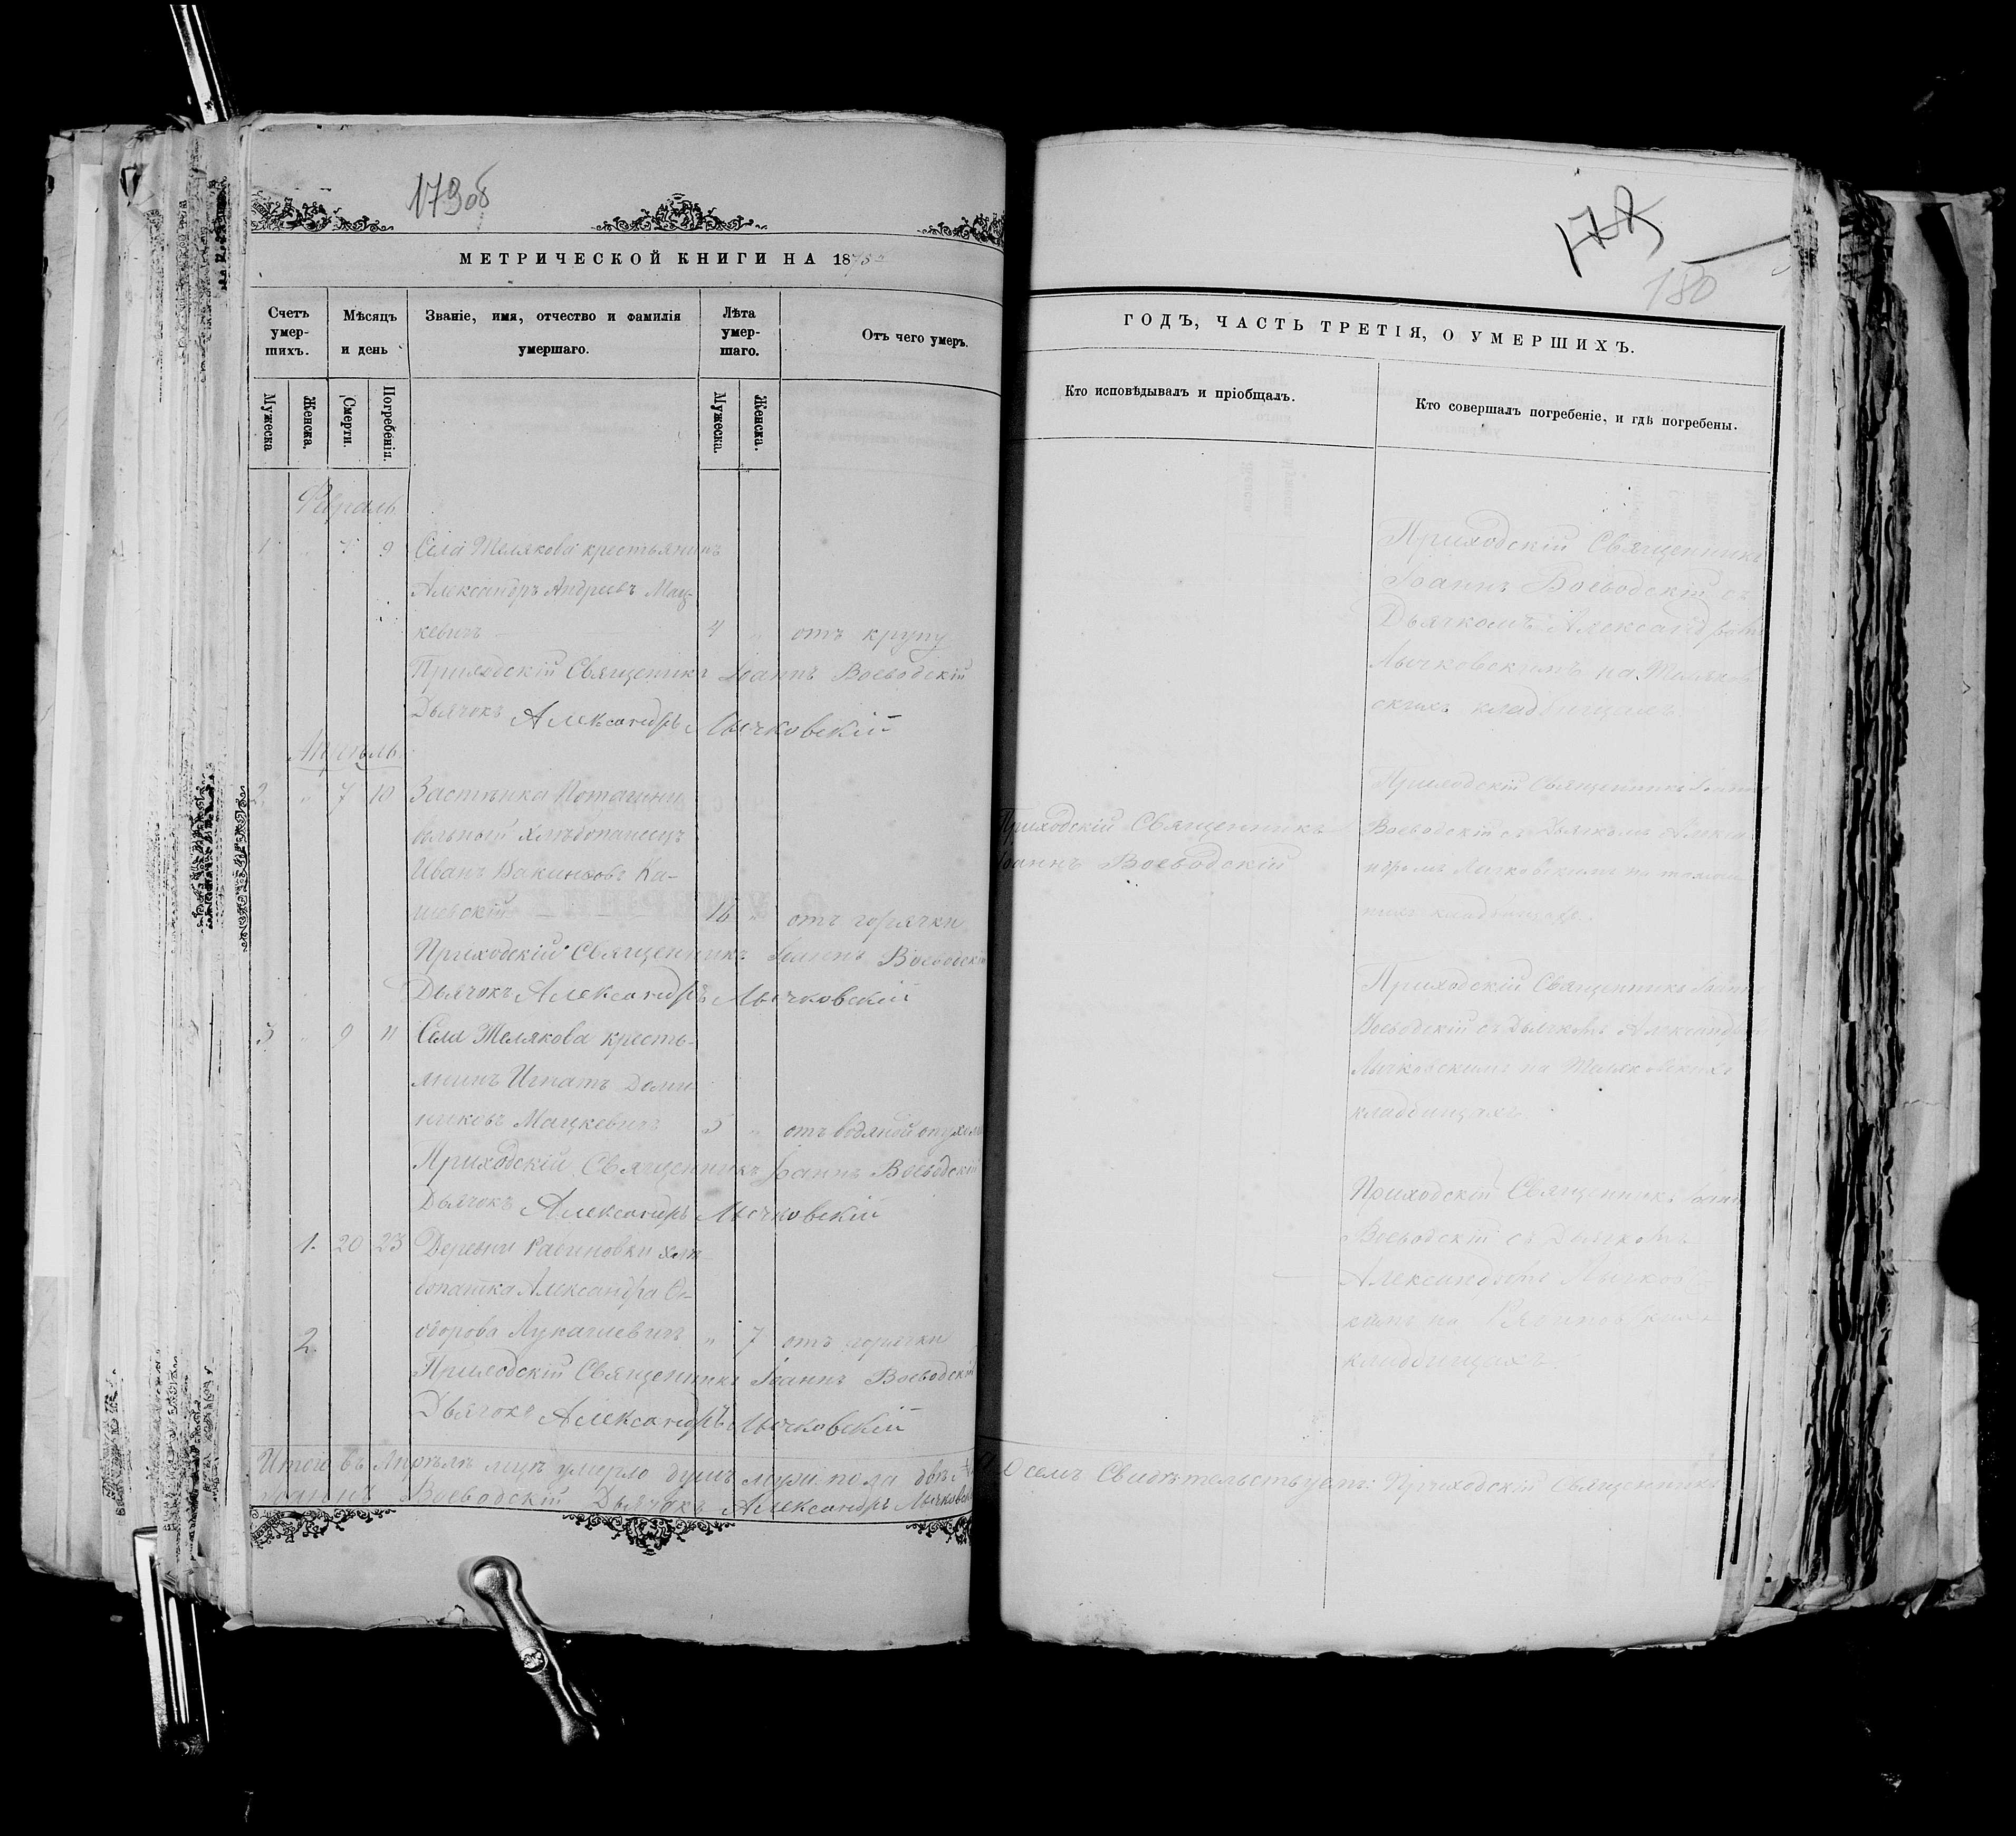 179об
МЕТРИЧЕСКОЙ КНИГИ НА 1875
Счетъ умер-шихъ.
Мѣсяцъ и день
Званіе, имя, отчество и фамилія умершаго.
Лѣта умер-шаго.
Отъ чего умеръ.
Мужеска
Женска.
Смерти.
Погребенія.
Мужеска.
Женска.
Февраль
1 " 7 9 Села Телякова крестьянинъ
Александръ Андреевъ Мац-
кевичъ 4 " отъ крупу
Приходскій Священникъ Іоаннъ Воеводскій
Дьячокъ Александръ Лычковскій
Апрель
2 " 7 10 Застѣнка
вольный хлѣбопашецъ
Иванъ Ка-
шевскій 16 " отъ горячки
Приходскій Священникъ Іоаннъ Воеводскій
Дьячокъ Александръ Лычковскій
3 " 9 11 Села Телякова кресть-
янинъ Игнатъ Доми
никовъ Мацкевичъ 5 " отъ водяной опухоли
Приходскій Священникъ Іоаннъ Воеводскій
Дьячокъ Александръ Лычковскій
1. 20 23 Деревни хлѣ
бопашка Александра Ѳе-
одорова Лукашевичъ " 7 отъ горячки
2.
Приходскій Священникъ Іоаннъ Воеводскій
Дьячокъ Александръ Лычковскій
Итого въ Апрѣлѣ м-цѣ умерло душъ муж. пола двѣ
Іоаннъ Воеводскій Дьячокъ Александръ Лычковскій
178
180
ГОДЪ, ЧАСТЬ ТРЕТІЯ, О УМЕРШИХЪ.
Кто исповѣдывалъ и пріобщалъ.
Кто совершалъ погребеніе, и гдѣ погребены.
Приходскій Священникъ
Іоаннъ Воеводскій съ
Дьячкомъ Александромъ
Лычковскимъ на Теляков
скихъ кладбищахъ.
Приходскій Священникъ
Іоаннъ Воеводскій
Приходскій Священникъ Іоаннъ
Воеводскій съ Дьячкомъ Алекса
ндромъ Лычковскимъ на
кладбищахъ.
Приходскій Священникъ Іоаннъ
Воеводскій съ Дьячкомъ Александромъ
Лычковскимъ на Теляковскихъ
кладбищахъ.
Приходскій Священникъ Іоаннъ
Воеводскій съ Дьячкомъ
Александромъ Лычков
скимъ на
кладбищахъ.
О семъ Свидѣтельствуетъ: Приходскій Священникъ